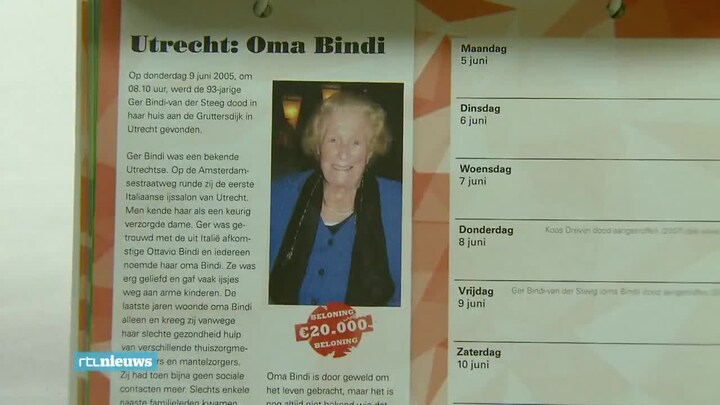 Utrecht: Oma Bindi
Op donderdag 9 juni 2005, om
08.10 uur, werd de 93-jarige
Ger Bindi-van der Steeg dood in
haar huis aan de Gruttersdijk in
Utrecht gevonden.
Ger Bindi was een bekende
Utrechtse. Op de Amsterdam-
sestraatweg runde zij de eerste
Italiaanse ijssalon van Utrecht.
Men kende haar als een keurig
verzorgde dame. Ger was ge-
trouwd met de uit Italië afkom-
stige Ottavio Bindi en iedereen
noemde haar oma Bindi. Ze was
erg geliefd en gaf vaak ijsjes
weg aan arme kinderen. De
laatste jaren woonde oma Bindi
alleen en kreeg zij vanwege
haar slechte gezondheid hulp
van verschillende thuiszorgme-
ers en mantelzorgers.
Zij had toen bijna geen sociale
contacten meer. Slechts enkele
naaste familieleden kwamen
BELONING
€20.000-
BELONING
Oma Bindi is door geweld om
het leven gebracht, maar het is
nog altijd niet bekend wie dat
Maandag
5 juni
Dinsdag
6 juni
Woensdag
7 juni
Donderdag
8 juni
Koos Dreven dood aangetroffen (2007)
Vrijdag
9 juni
Ger Bindi-van der Steeg (oma Bindi) dood aangetroffen
Zaterdag
10 juni
rtl nieuws